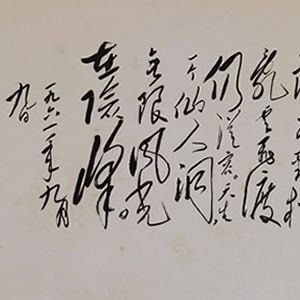 亂云飛渡
仍從容。天生
一个仙人洞
无限風光
在險峰。
一九六一年九月
九日